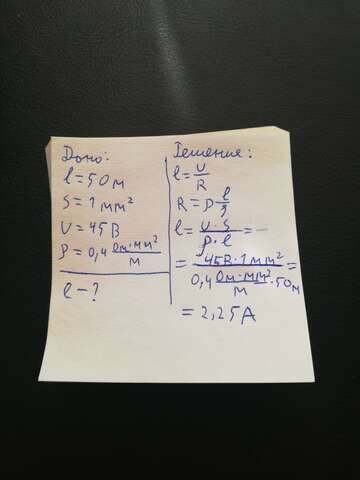 Дано:
l = 50 м
S = 1 мм²
U = 45 В
ρ = 0,4 Ом·мм²/м
l - ?
Решения:
l = U/R
R = ρ l/S
l = U·S/ρ·l =
= 45В·1мм²/0,4 Ом·мм²/м·50м =
= 2,25 А